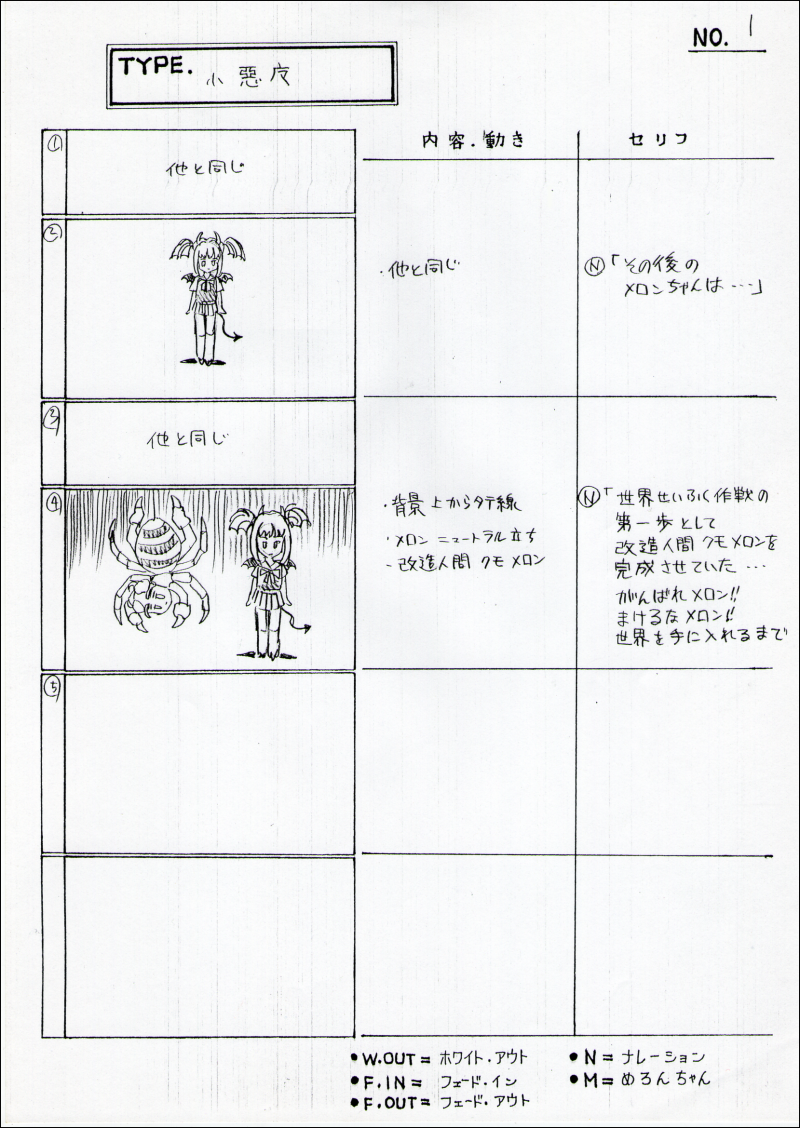 NO. 1
TYPE. 小悪魔
内容・動き
セリフ
①
他と同じ
②
・他と同じ
Ⓝ「その後の
メロンちゃんは・・・」
③
他と同じ
④
・背景上からタテ線
・メロン ニュートラル立ち
・改造人間 クモメロン
Ⓝ「世界せいふく作戦の
第一歩として
改造人間 クモメロンを
完成させていた・・・
がんばれメロン!!
まけるなメロン!!
世界を手に入れるまで
⑤
●W.OUT= ホワイト・アウト
●F.IN= フェード・イン
●F.OUT= フェード・アウト
●N= ナレーション
●M= めろんちゃん